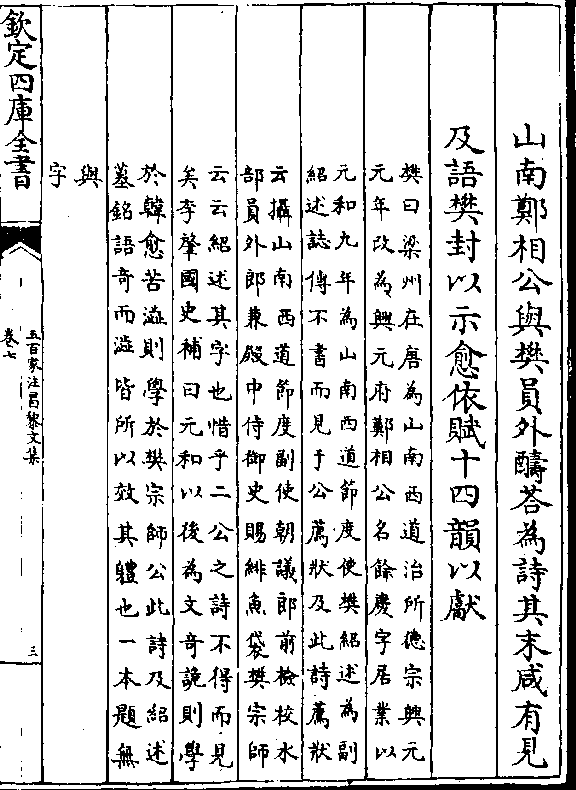 山南鄭相公與樊員外醻荅為詩其末咸有見
及語樊封以示愈依賦十四韻以獻
樊曰梁州在唐為山南西道治所德宗興元
元年改為興元府鄭相公名餘慶字居業以
元和九年為山南西道節度使樊紹述為副
紹述誌傳不書而見于公薦狀及此詩薦狀
云攝山南西道節度副使朝議郎前檢校水
部員外郎兼殿中侍御史賜緋魚袋樊宗師
云云紹述其字也惜乎二公之詩不得而見
矣李肇國史補曰元和以後為文奇詭則學
於韓愈苦澁則學於樊宗師公此詩及紹述
墓銘語奇而澁皆所以效其體也一本題無
與
字
欽定四庫全書
五百家注昌黎文集
卷七
三